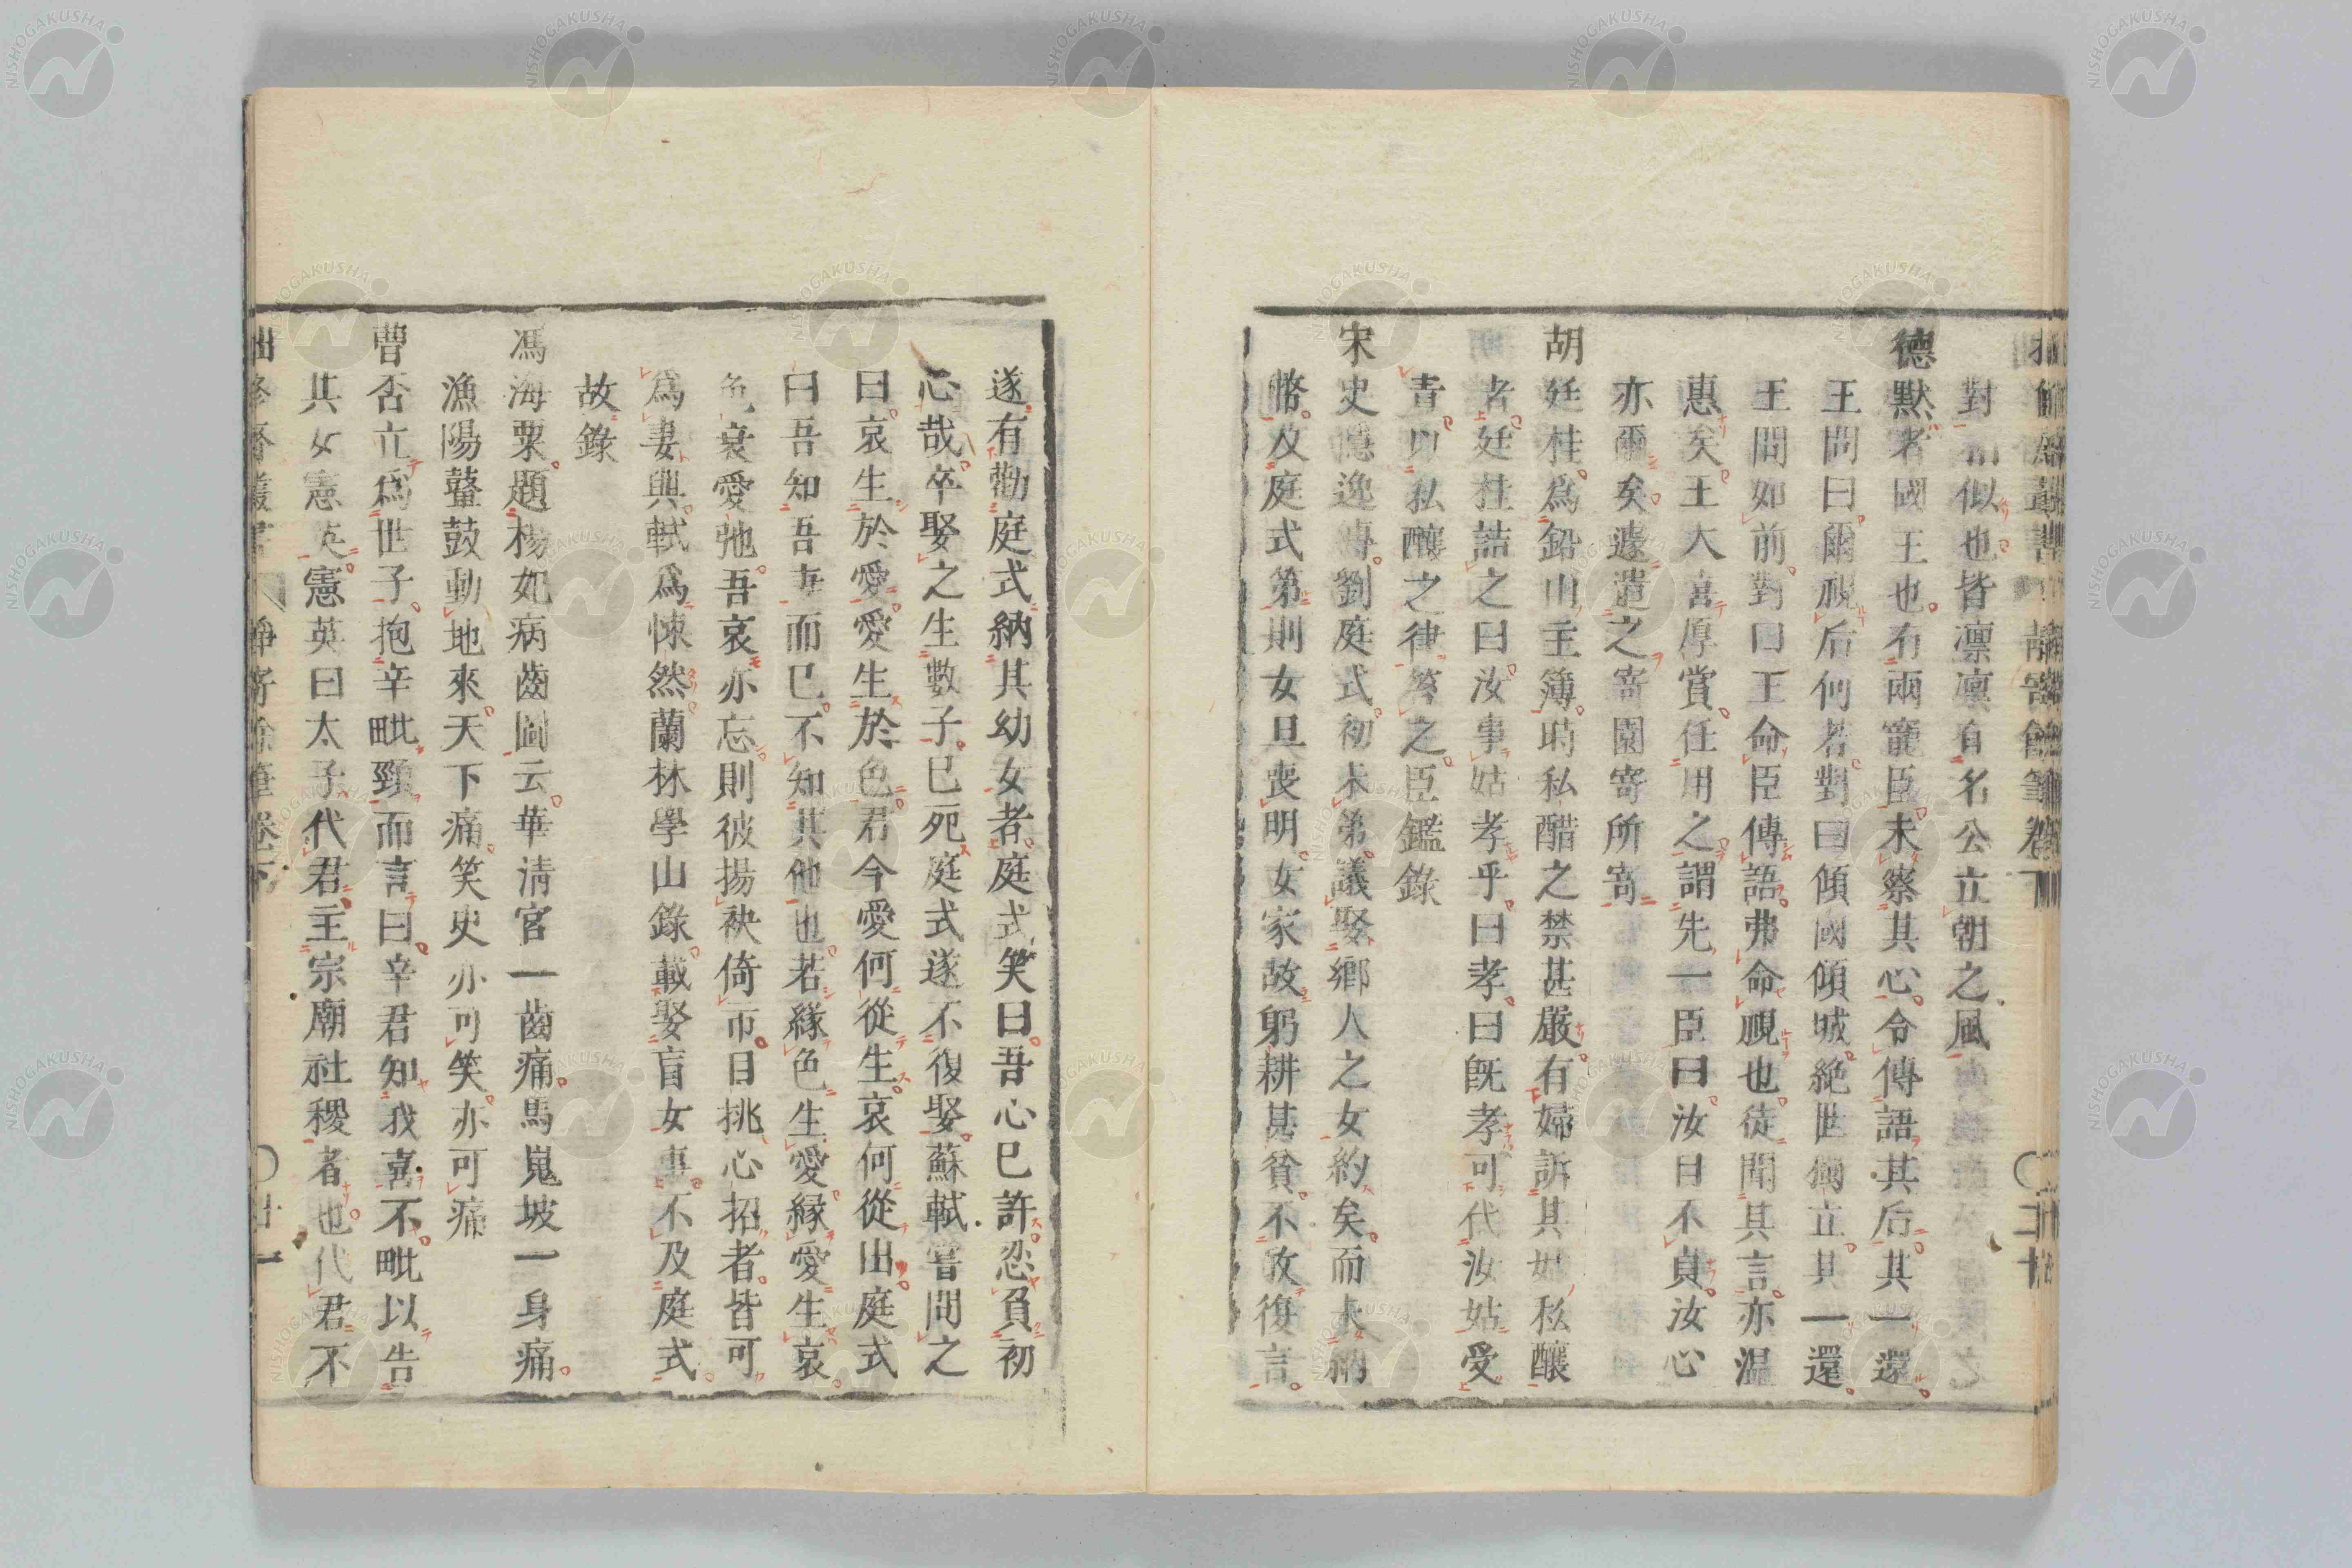 對相似也皆凛凛有名公立朝之風
德默者國王也有兩寵臣未察其心令傳語其后其一還
王問曰爾視后何若對曰傾國傾城絶世獨立其一還
王問如前對曰王命臣傳語弗命視也徒聞其言亦温
惠矣王大喜厚賞任用之謂先一臣曰汝目不貞汝心
亦爾矣遽遣之寄園寄所寄
胡廷桂爲鉛山主簿時私醋之禁甚嚴有婦訴其姑私釀
者廷桂詰之曰汝事姑孝乎曰孝曰既孝可代汝姑受
責以私釀之律笞之臣鑑錄
宋史隱逸傳劉庭式初未第議娶鄉人之女約矣而未納
幣及庭式第則女且喪明女家故躬耕甚貧不敢復言
遂有勸庭式納其幼女者庭式笑曰吾心已許忍負初
心哉卒娶之生數子已死庭式遂不復娶蘇軾嘗問之
曰哀生於愛愛生於色君今愛何從生哀何從出庭式
曰吾知吾妻而已不知其他也若緣色生愛緣愛生哀
色衰愛弛吾哀亦忘則彼揚袂倚市目挑心招者皆可
爲妻與軾爲悚然蘭林學山錄載娶盲女事不及庭式
故錄
馮海粟題楊妃病齒圖云華淸宮一齒痛馬嵬坡一身痛
漁陽鼙鼓動地來天下痛笑史亦可笑亦可痛
曹否立爲世子抱辛毗頸而言曰辛君知我喜不毗以告
其女憲英憲英曰太子代君主宗廟社稷者也代君不